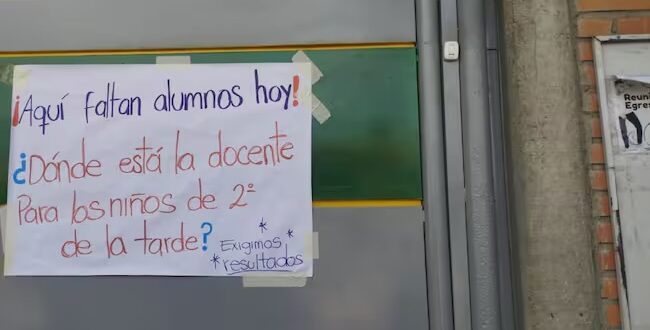 ¡Aquí faltan alumnos hoy!
¿Dónde está la docente
Para los niños de 2º
de la tarde?
* Exigimos *
* resultados
Reuni
Egre